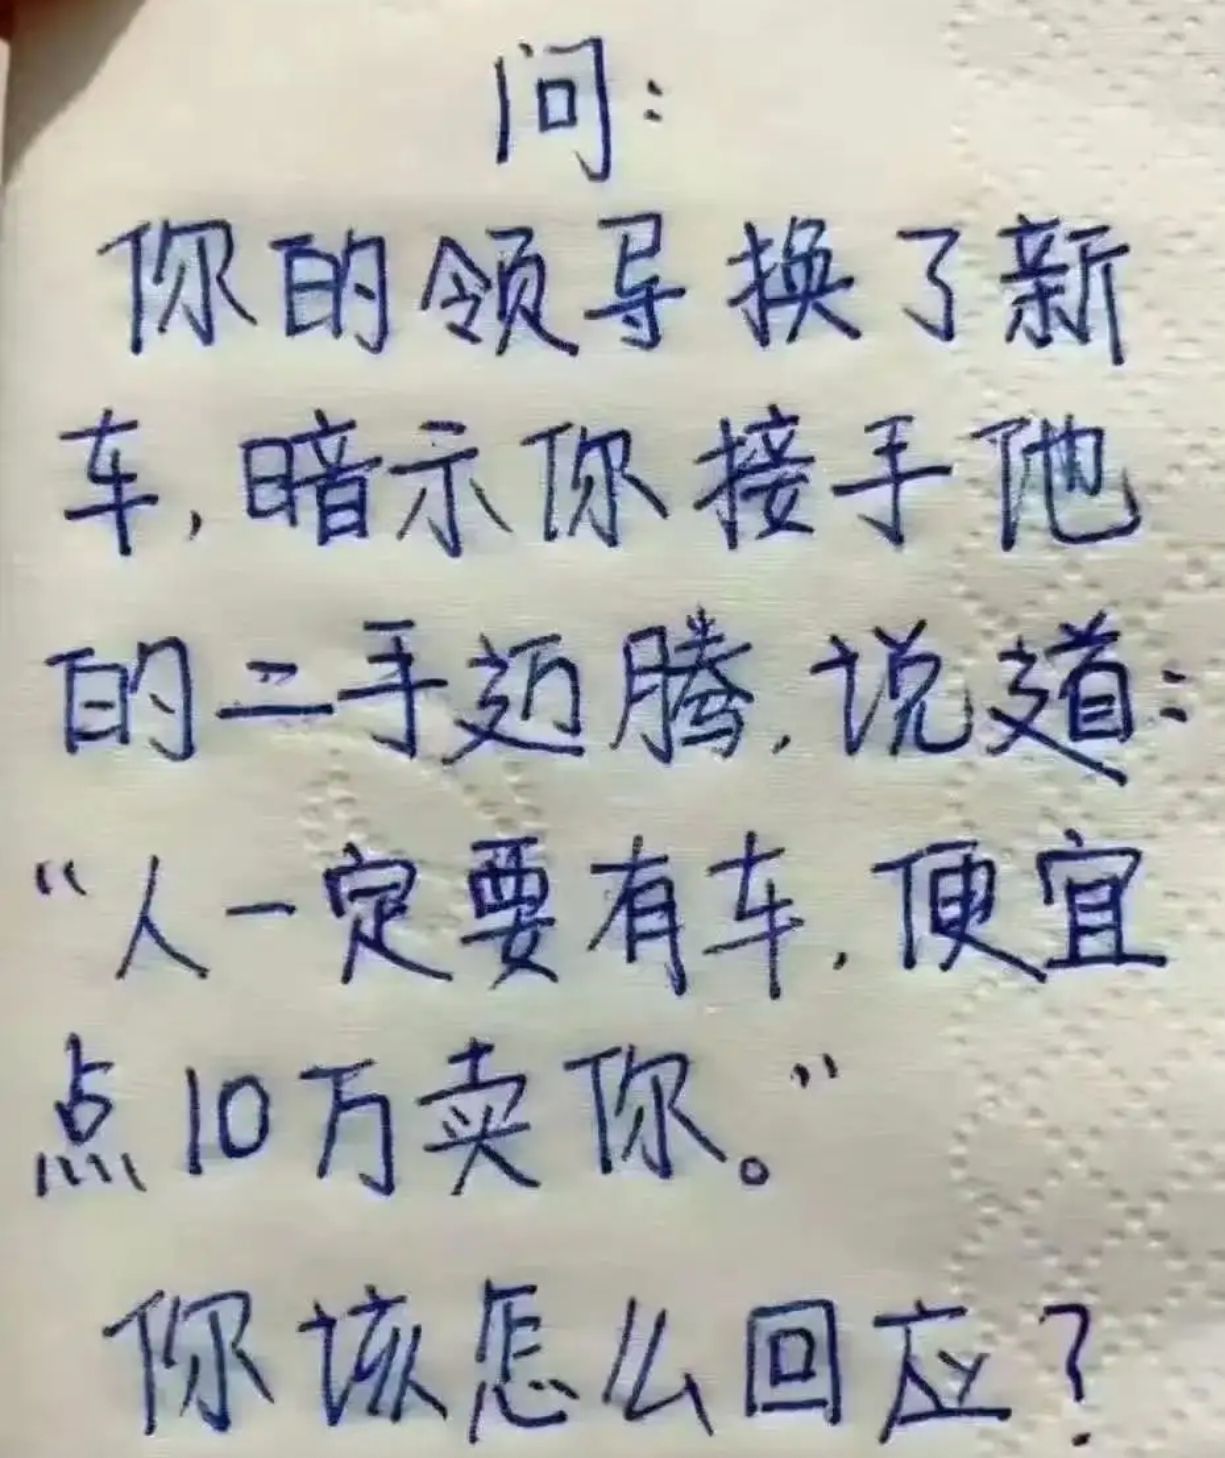 问：
你的领导换了新
车，暗示你接手他
的二手迈腾，说道：
“人一定要有车，便宜
点10万卖你。”
你该怎么回应？